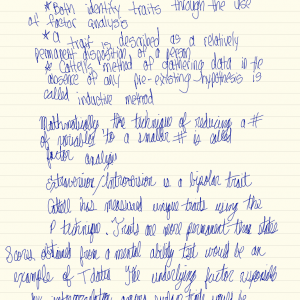 * Both identify traits through the use
of factor analysis
* A trait is described as a relatively
permanent disposition of a person
* Cattell's method of gathering data in the
absence of any pre-existing hypothesis is
called inductive method
Mathmatically the technique of reducing a #
of variables to a smaller # is called
factor analysis
Extroversion/Introversion is a bipolar trait
Cattell has measured unique traits using the
P technique. Traits are more permanent than states
Scores obtained from a mental ability test would be an
example of T data. The underlying factor responsible
for intercorrelation among surface traits would be